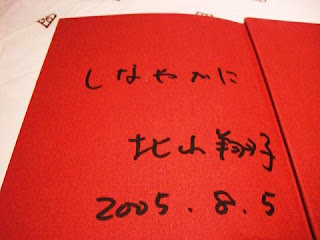 しなやかに
北山翔子
2005.8.5